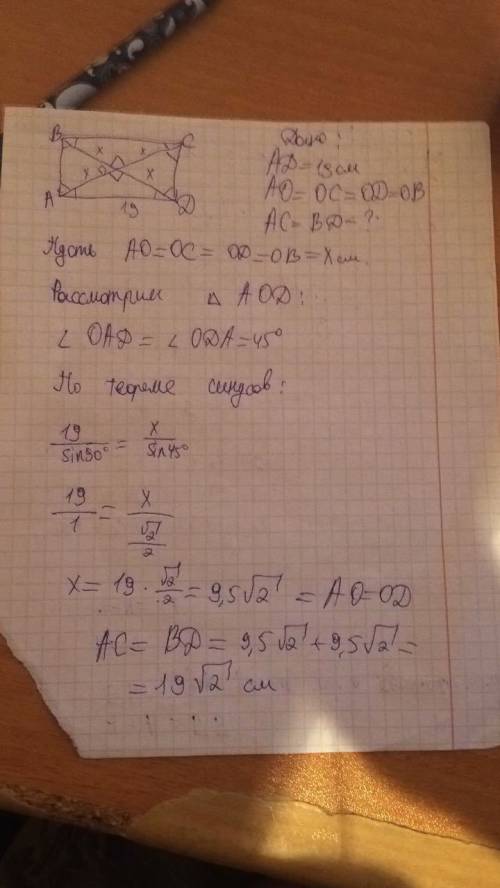 B C
x x
x O x
A 19 D
Дано:
AD = 19 см
AO = OC = OD = OB
AC = BD = ?
Пусть AO = OC = OD = OB = x см.
Рассмотрим △ AOD:
∠ OAD = ∠ ODA = 45°
По теореме синусов:
19/sin90° = x/sin45°
19/1 = x/(√2/2)
x = 19 · √2/2 = 9,5√2 = AO = OD
AC = BD = 9,5√2 + 9,5√2 =
= 19√2 см